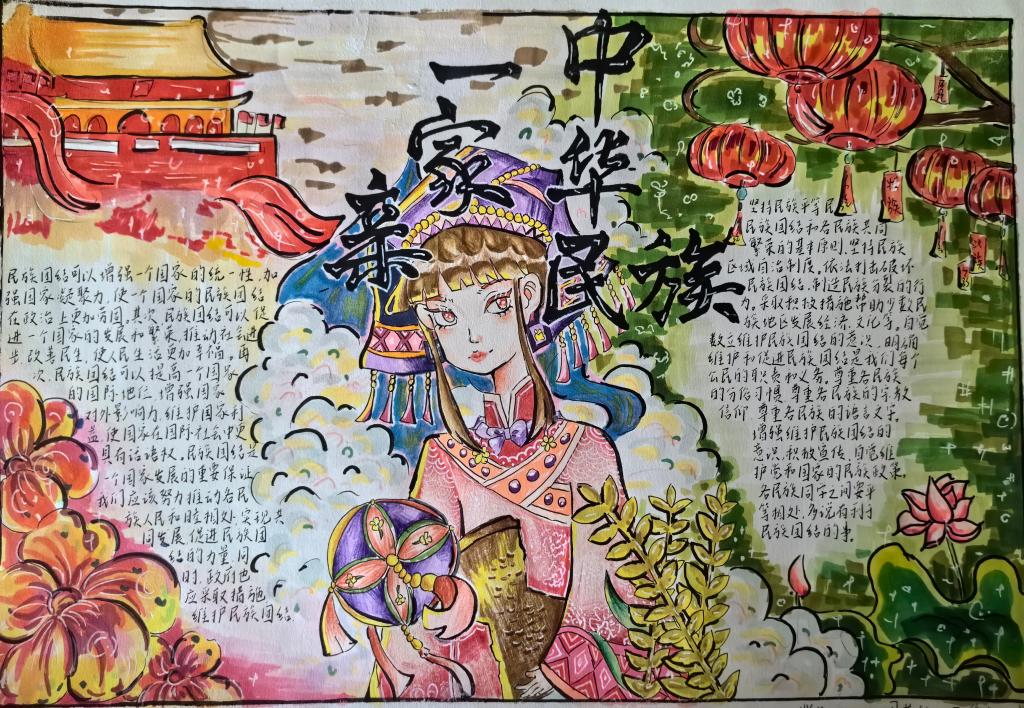 中华民族
一家亲
民族团结可以增强一个国家的统一性,加
强国家凝聚力,使一个国家的民族团结
在政治上更加牢固,其次,民族团结可以促
进一个国家的发展和繁荣,推动社会进
步,改善民生,使人民生活更加幸福,再
次,民族团结可以提高一个国家
的国际地位,增强国家
对外影响力,维护国家利
益,使国家在国际社会中更
具有话语权,民族团结是
一个国家发展的重要保证,
我们应该努力推动各民
族人民和睦相处,实现共
同发展,促进民族团
结的力量,同
时,政府也
应采取措施
维护民族团结.
坚持民族平等民
民族团结和各民族共同
繁荣的基本原则.坚持民族
区域自治制度,依法打击破坏
民族团结,制造民族分裂的行
为,采取积极措施帮助少数民
族地区发展经济,文化等,自觉
树立维护民族团结的意识,明确
维护和促进民族团结是我们每个
公民的职责和义务.尊重各民族
的风俗习惯,尊重各民族的宗教
信仰.尊重各民族的语言文字.
增强维护民族团结的
意识.积极宣传,自觉维
护党和国家的民族政策.
各民族同学之间要平
等相处,多说有利于
民族团结的事